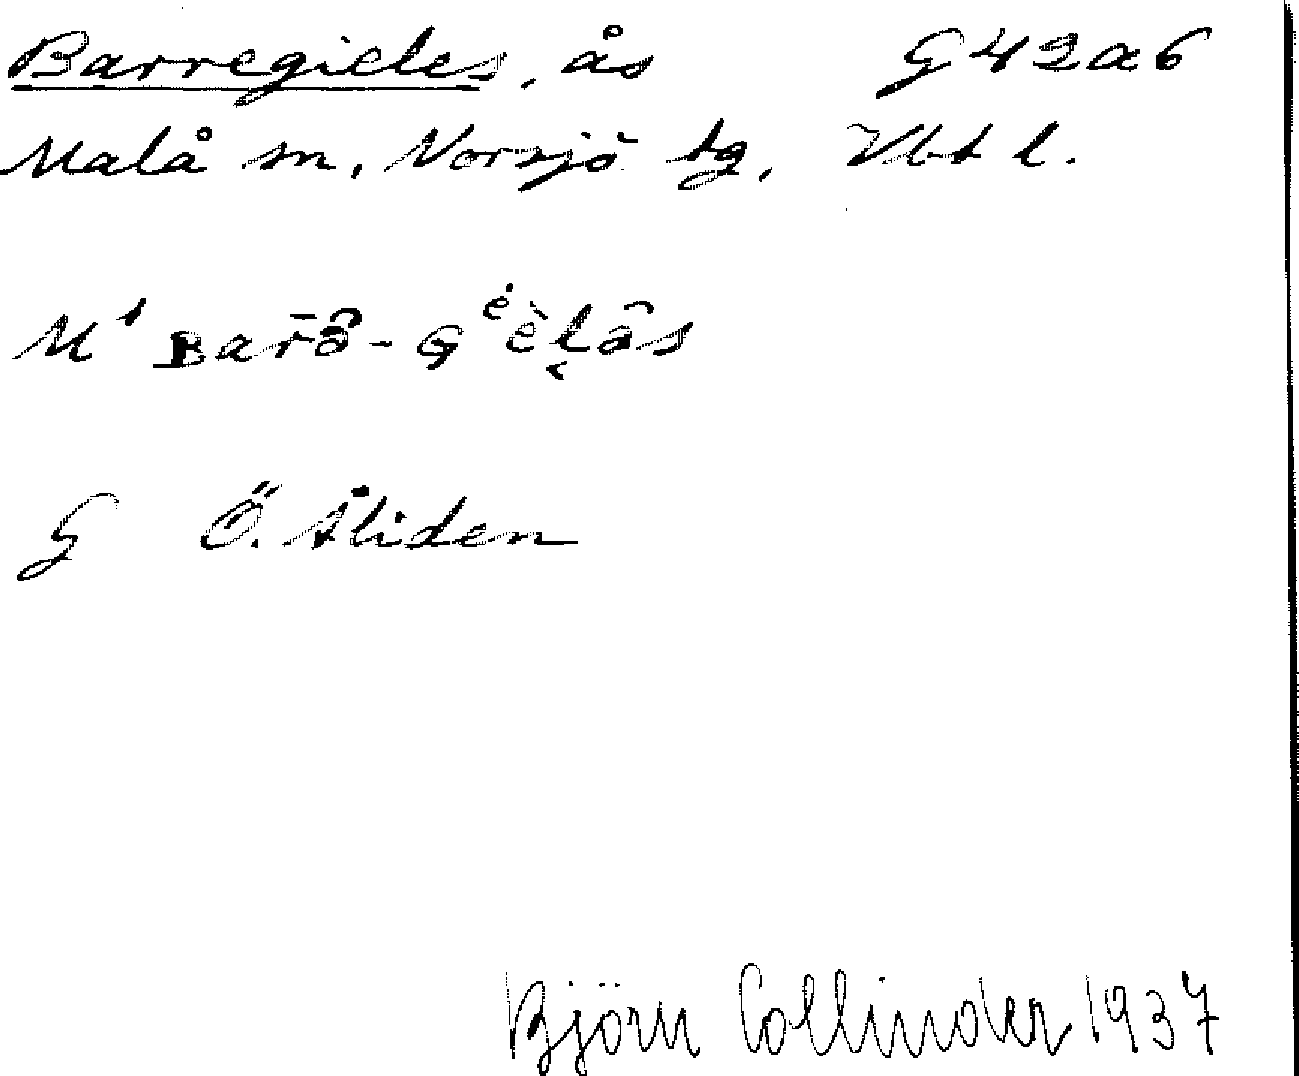 Barregieles, ås G42a6
Malå sn, Norsjö tg, Vbt l.
M¹ ʙar̄ō̂-ɢᵉ̇èl̬âs
G Ö. Åliden
Björn Collinder 1937